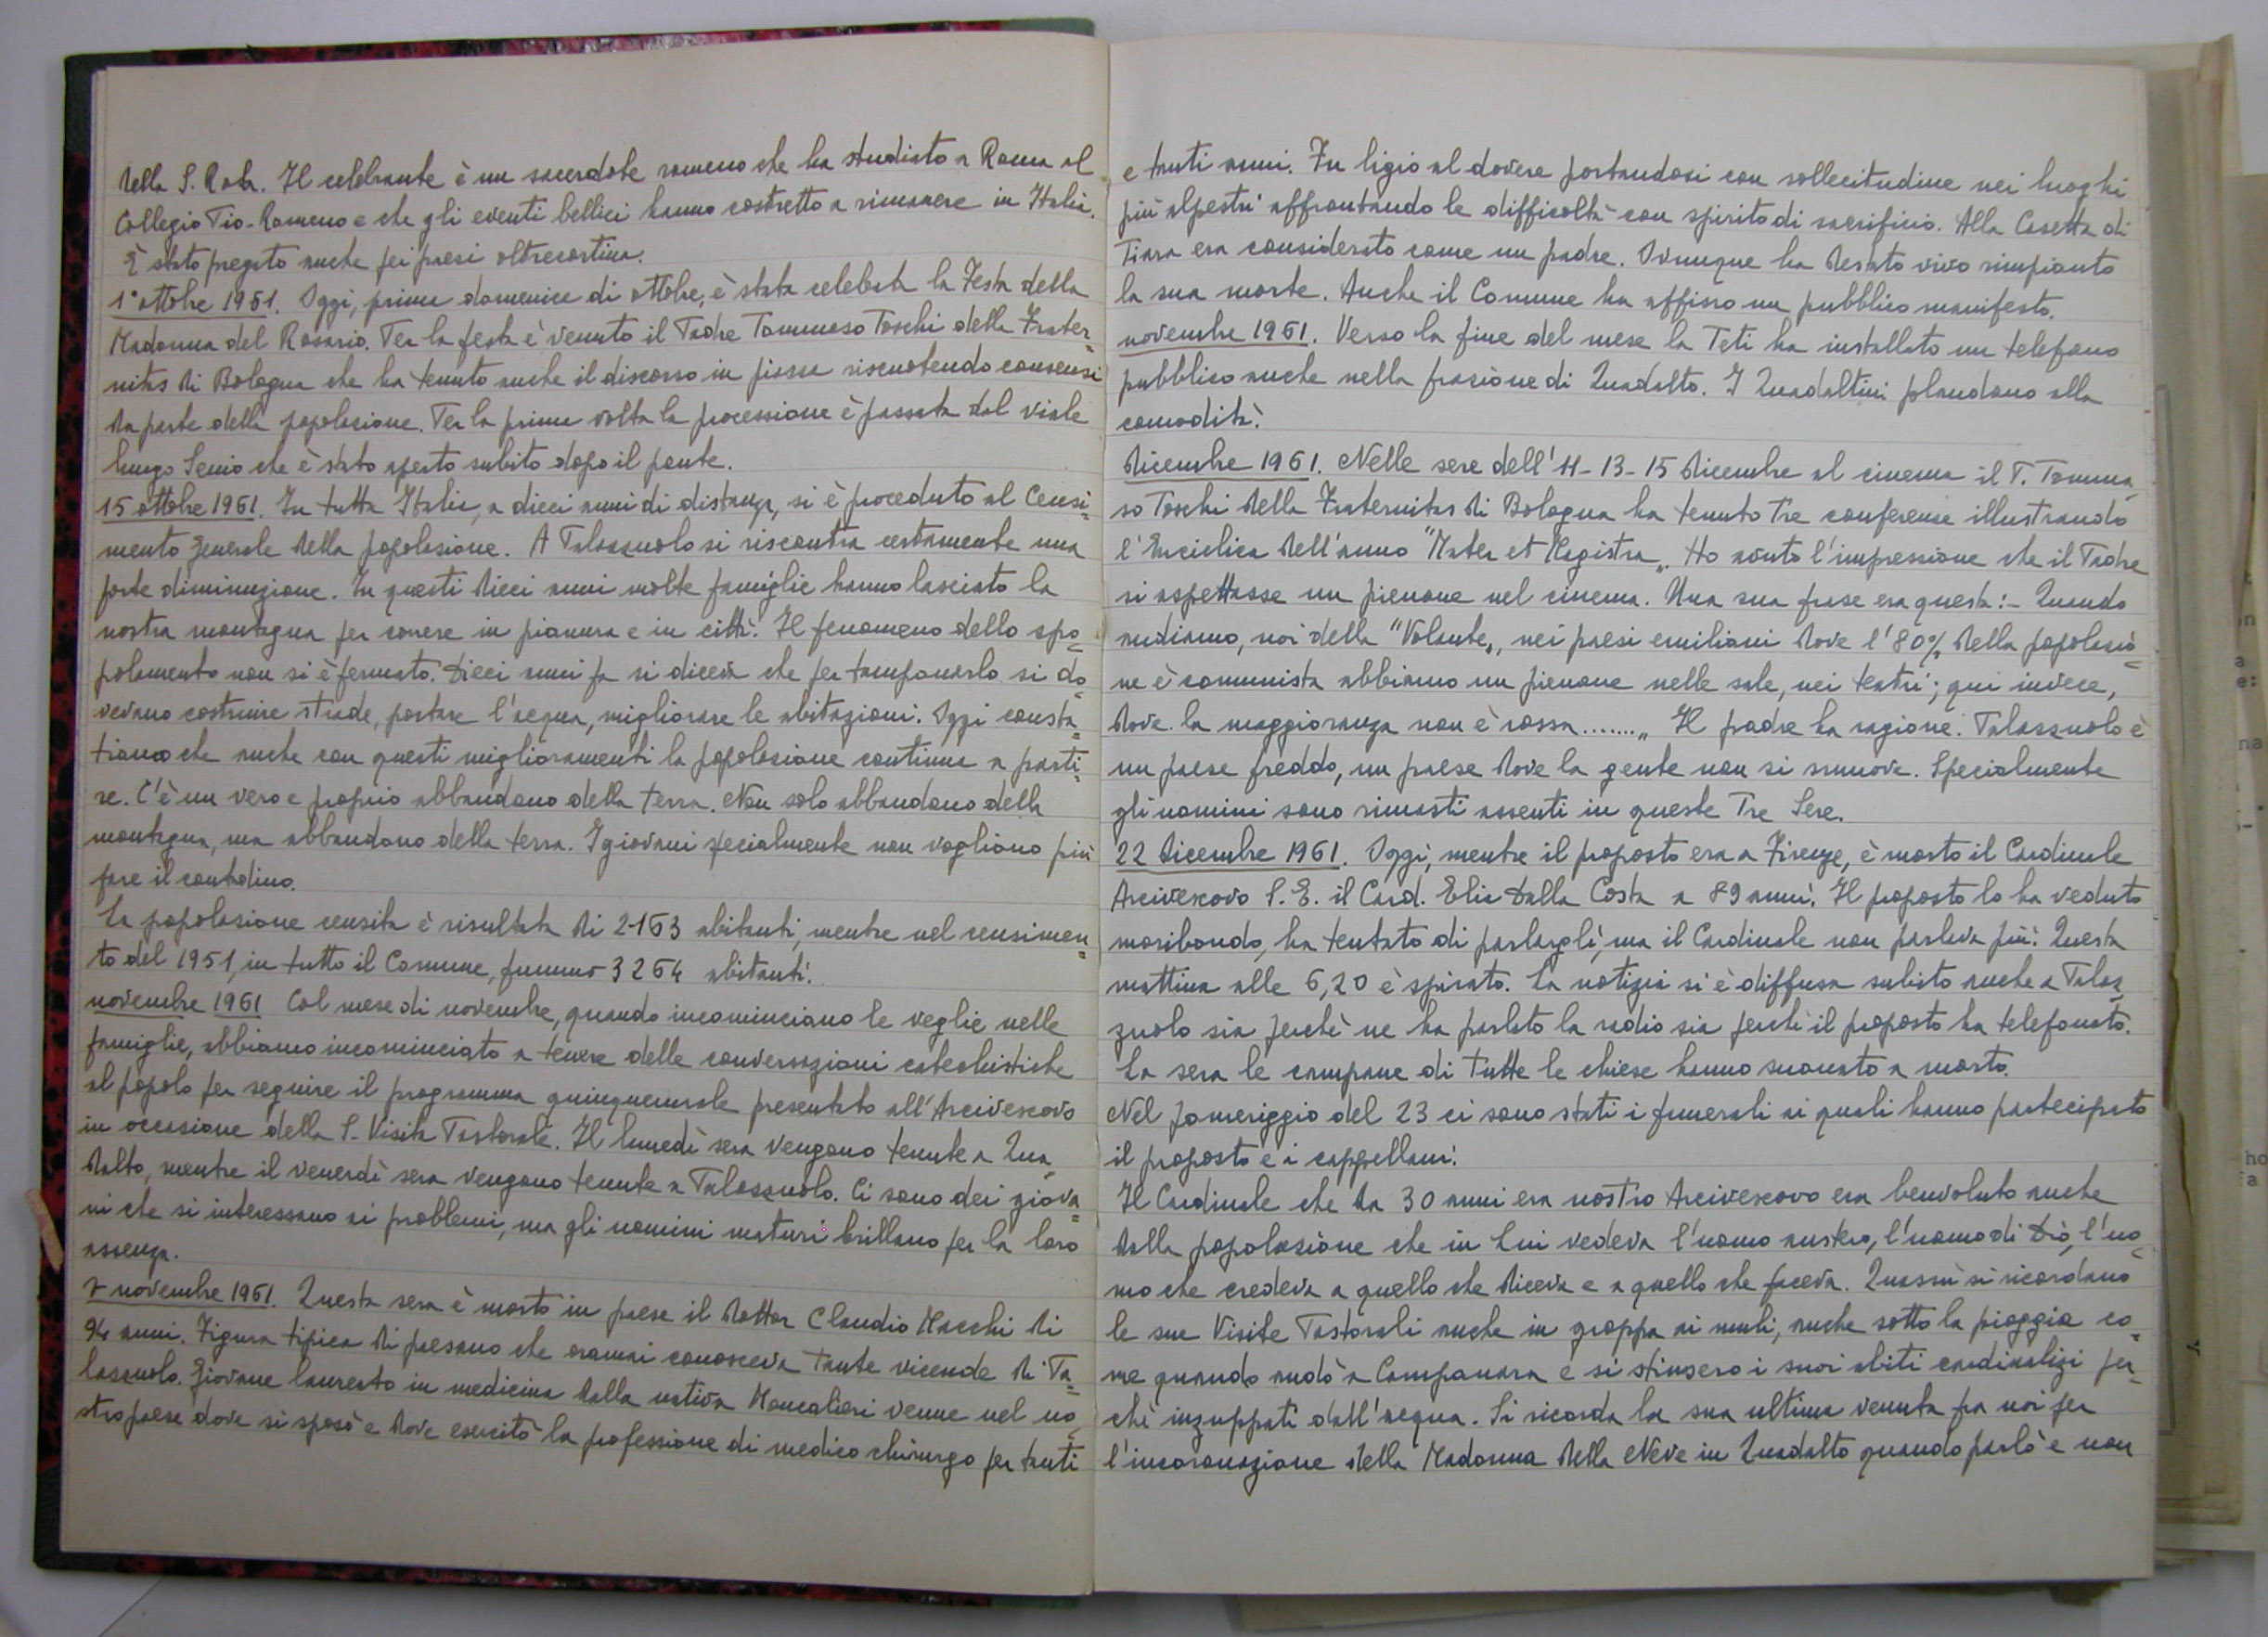 della S. Rota. Il celebrante è un sacerdote romeno che ha studiato a Roma al
Collegio Pio-Romeno e che gli eventi bellici hanno costretto a rimanere in Italia.
È stato pregato anche pei paesi oltrecortina.
1° ottobre 1961. Oggi, prima domenica di ottobre, è stata celebrata la Festa della
Madonna del Rosario. Per la festa è venuto il Padre Tommaso Toschi della Frater=
nitas di Bologna che ha tenuto anche il discorso in piazza riscuotendo consensi
da parte della popolazione. Per la prima volta la processione è passata dal viale
lungo Senio che è stato aperto subito dopo il ponte.
15 ottobre 1961. In tutta Italia, a dieci anni di distanza, si è proceduto al Censi=
mento generale della popolazione. A Palazzuolo si riscontra certamente una
forte diminuzione. In questi dieci anni molte famiglie hanno lasciato la
nostra montagna per correre in pianura e in città. Il fenomeno dello spo=
polamento non si è fermato. Dieci anni fa si diceva che per tamponarlo si do=
vevano costruire strade, portare l'acqua, migliorare le abitazioni. Oggi consta=
tiamo che anche con questi miglioramenti la popolazione continua a parti=
re. C'è un vero e proprio abbandono della terra. Non solo abbandono della
montagna, ma abbandono della terra. I giovani specialmente non vogliono più
fare il contadino.
La popolazione censita è risultata di 2163 abitanti, mentre nel censimen=
to del 1951, in tutto il Comune, furono 3264 abitanti.
novembre 1961 Col mese di novembre, quando incominciano le veglie nelle
famiglie, abbiamo incominciato a tenere delle conversazioni catechistiche
al popolo per seguire il programma quinquennale presentato all'Arcivescovo
in occasione della S. Visita Pastorale. Il lunedì sera vengono tenute a Qua=
dalto, mentre il venerdì sera vengono tenute a Palazzuolo. Ci sono dei giova=
ni che si interessano ai problemi, ma gli uomini maturi brillano per la loro
assenza.
7 novembre 1961. Questa sera è morto in paese il dottor Claudio Macchi di
94 anni. Figura tipica di paesano che oramai conosceva tante vicende di Pa=
lazzuolo. Giovane laureato in medicina dalla nativa Moncalieri venne nel no=
stro paese dove si sposò e dove esercitò la professione di medico chirurgo per tanti
e tanti anni. Fu ligio al dovere portandosi con sollecitudine nei luoghi
più alpestri affrontando le difficoltà con spirito di sacrificio. Alla Casetta di
Tiara era considerato come un padre. Ovunque ha destato vivo rimpianto
la sua morte. Anche il Comune ha affisso un pubblico manifesto.
novembre 1961. Verso la fine del mese la Teti ha installato un telefono
pubblico anche nella frazione di Quadalto. I Quadaltini plaudono alla
comodità.
dicembre 1961. Nelle sere dell'11-13-15 dicembre al cinema il P. Tomma=
so Toschi della Fraternitas di Bologna ha tenuto Tre conferenze illustrando
l'Enciclica dell'anno "Mater et Magistra„. Ho avuto l'impressione che il Padre
si aspettasse un pienone nel cinema. Una sua frase era questa:- Quando
andiamo, noi della "Volante„, nei paesi emiliani dove l'80% della popolazio=
ne è comunista abbiamo un pienone nelle sale, nei teatri; qui invece,
dove la maggioranza non è rossa.......„ Il padre ha ragione. Palazzuolo è
un paese freddo, un paese dove la gente non si smuove. Specialmente
gli uomini sono rimasti assenti in queste Tre Sere.
22 dicembre 1961. Oggi, mentre il proposto era a Firenze, è morto il Cardinale
Arcivescovo S.E. il Card. Elia Dalla Costa a 89 anni. Il proposto lo ha veduto
moribondo, ha tentato di parlargli, ma il Cardinale non parlava più. Questa
mattina alle 6,20 è spirato. La notizia si è diffusa subito anche a Palaz=
zuolo sia perchè ne ha parlato la radio sia perchè il proposto ha telefonato.
La sera le campane di tutte le chiese hanno suonato a morto.
Nel pomeriggio del 23 ci sono stati i funerali ai quali hanno partecipato
il proposto e i cappellani.
Il Cardinale che da 30 anni era nostro Arcivescovo era benvoluto anche
dalla popolazione che in Lui vedeva l'uomo austero, l'uomo di Dio, l'uo=
mo che credeva a quello che diceva e a quello che faceva. Quassù si ricordano
le sue Visite Pastorali anche in groppa ai muli, anche sotto la pioggia co=
me quando andò a Campanara e si stinsero i suoi abiti cardinalizi per=
chè inzuppati dall'acqua. Si ricorda la sua ultima venuta fra noi per
l'incoronazione della Madonna della Neve in Quadalto quando parlò e non